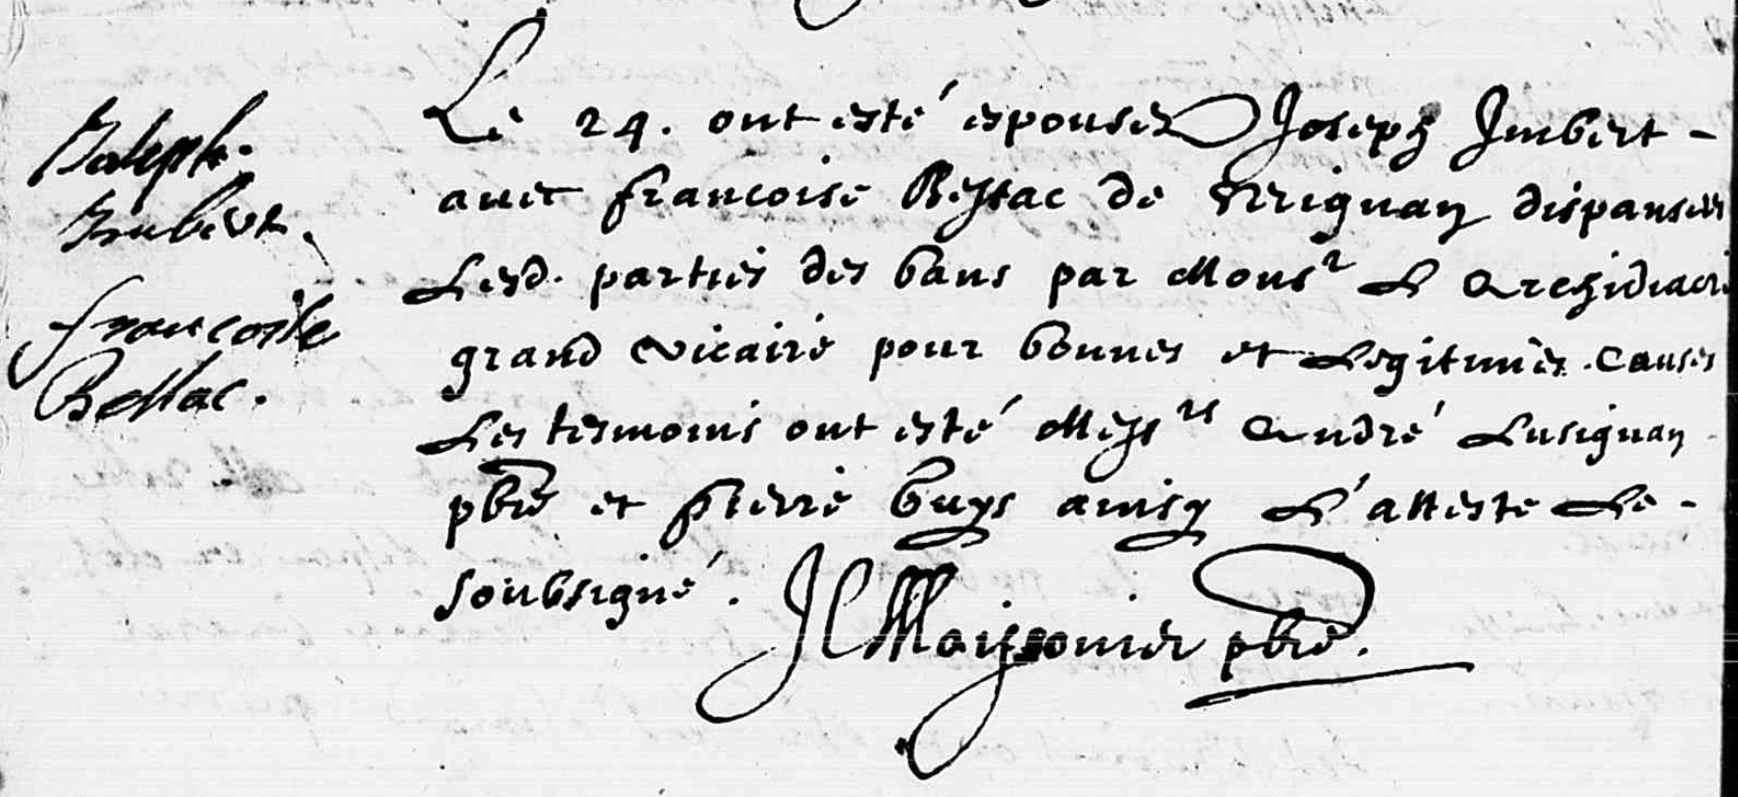 Joseph
Imbert.
francoise
Bessac.
Le 24. ont esté espousez Joseph Imbert -
avec francoise Bessac de dispanseés
Lesd. parties des bans par Monsr L Archidiacre
grand vicaire pour bonnes et Legitimes causes
Les tesmoins ont esté Messrs André Lusignan
pbre et pierre buys ainsy L'atteste Le -
soubsigné.
J Maissonier pbre.